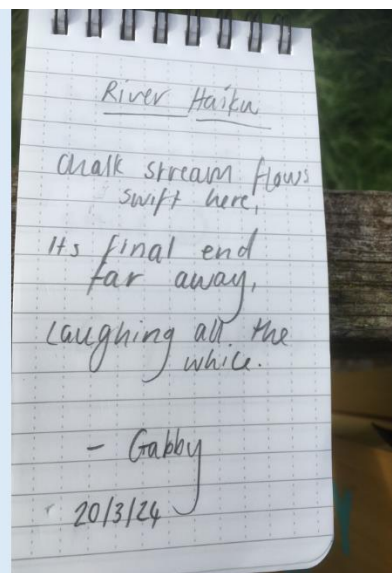 River Haiku
Chalk stream flows
swift here,
Its final end
far away,
Laughing all the
while.
- Gabby
20/3/24